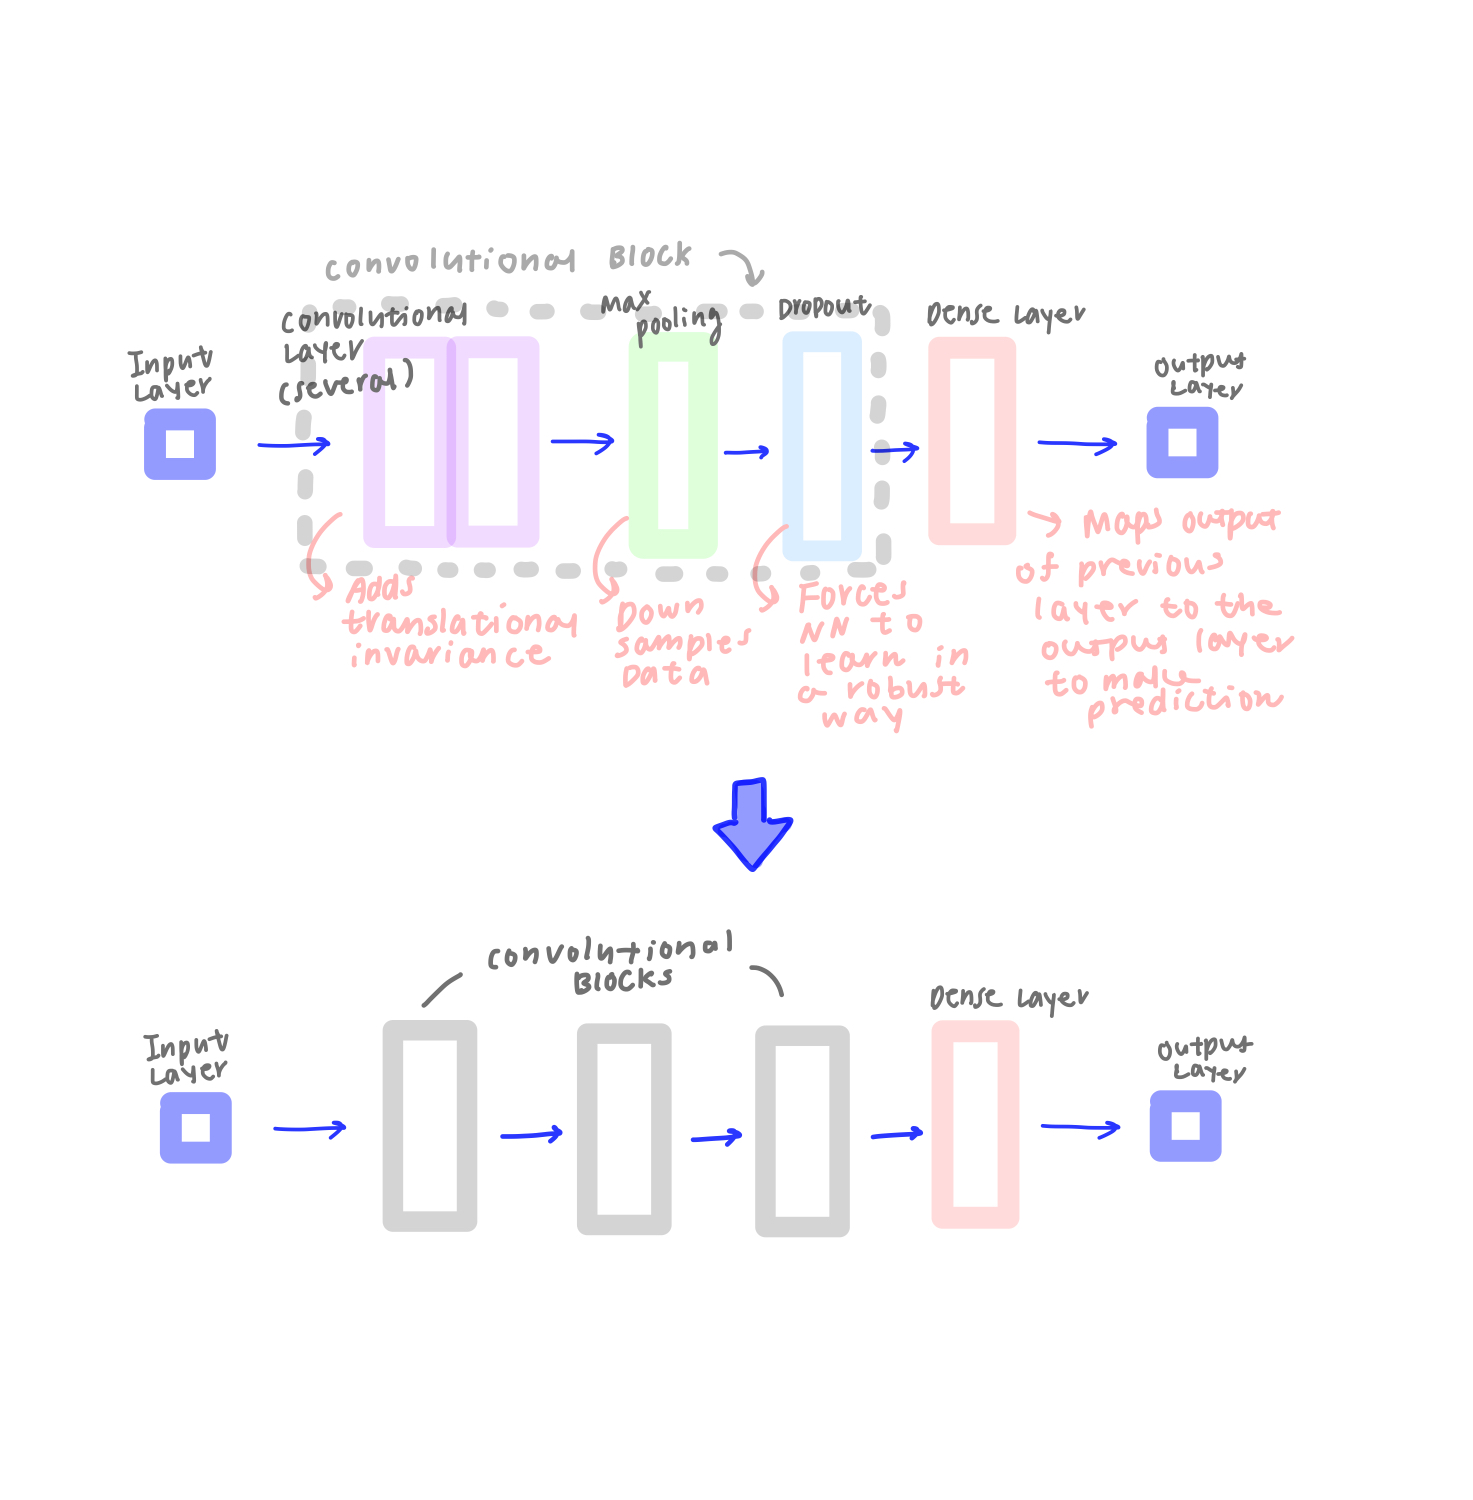 Convolutional Block
Input
Layer
Convolutional
Layer
(several)
Max
pooling
Dropout
Dense Layer
Output
Layer
Adds
translational
invariance
Down
samples
Data
Forces
NN to
learn in
a robust
way
Maps output
of previous
layer to the
output layer
to make
prediction
Convolutional
Blocks
Input
Layer
Dense Layer
Output
Layer